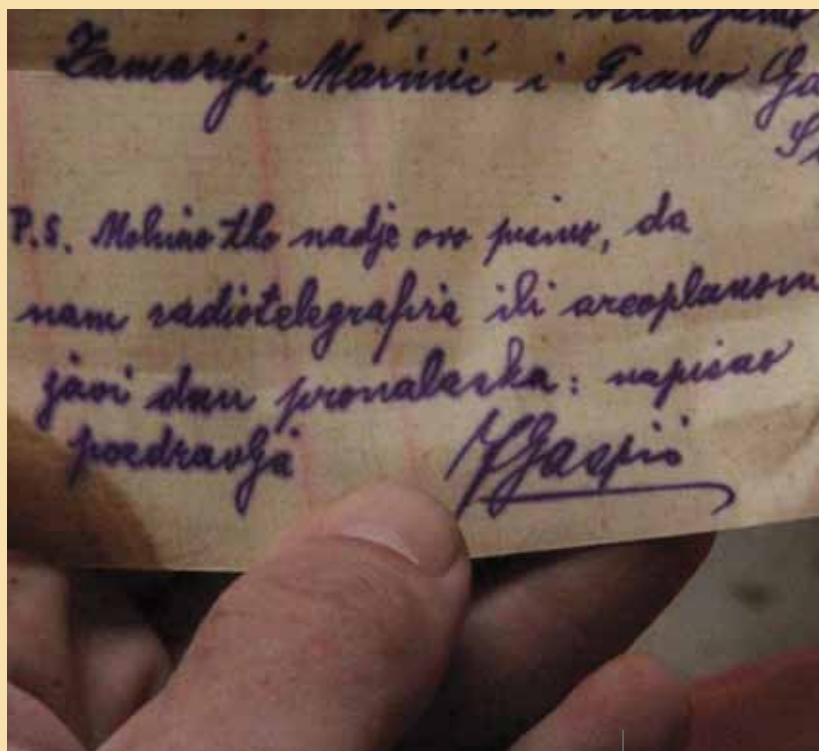 Zamarija Marinić i Frano Ga
P.S. Molimo tko nadje ovo pismo, da
nam radiotelegrafira ili areoplanom
javi dan pronalaska: napisao
pozdravlja FGaspić